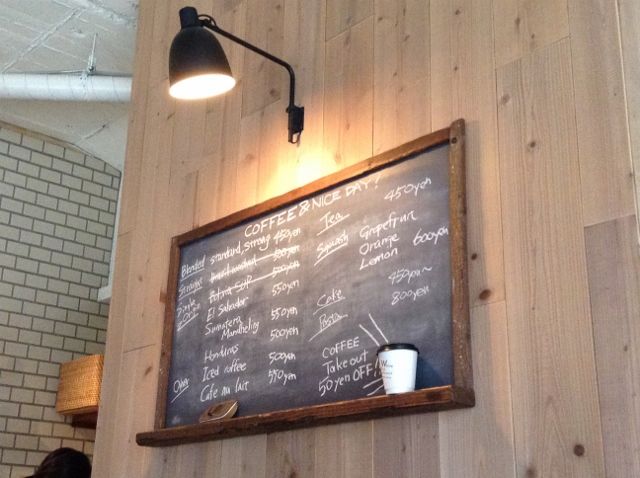 COFFEE & NICE DAY!
Blended standard, strong 450yen
Straight
500yen
500yen
El Salvador 550yen
Sumatera
Mandheling 550yen
500yen
Honduras 500yen
Other Iced coffee 500yen
Cafe au lait 550yen
Tea 450yen
Squash Grapefruit
Orange 600yen
Lemon
Cake 450yen~
Pasta 800yen
COFFEE
Take out
50yen OFF!